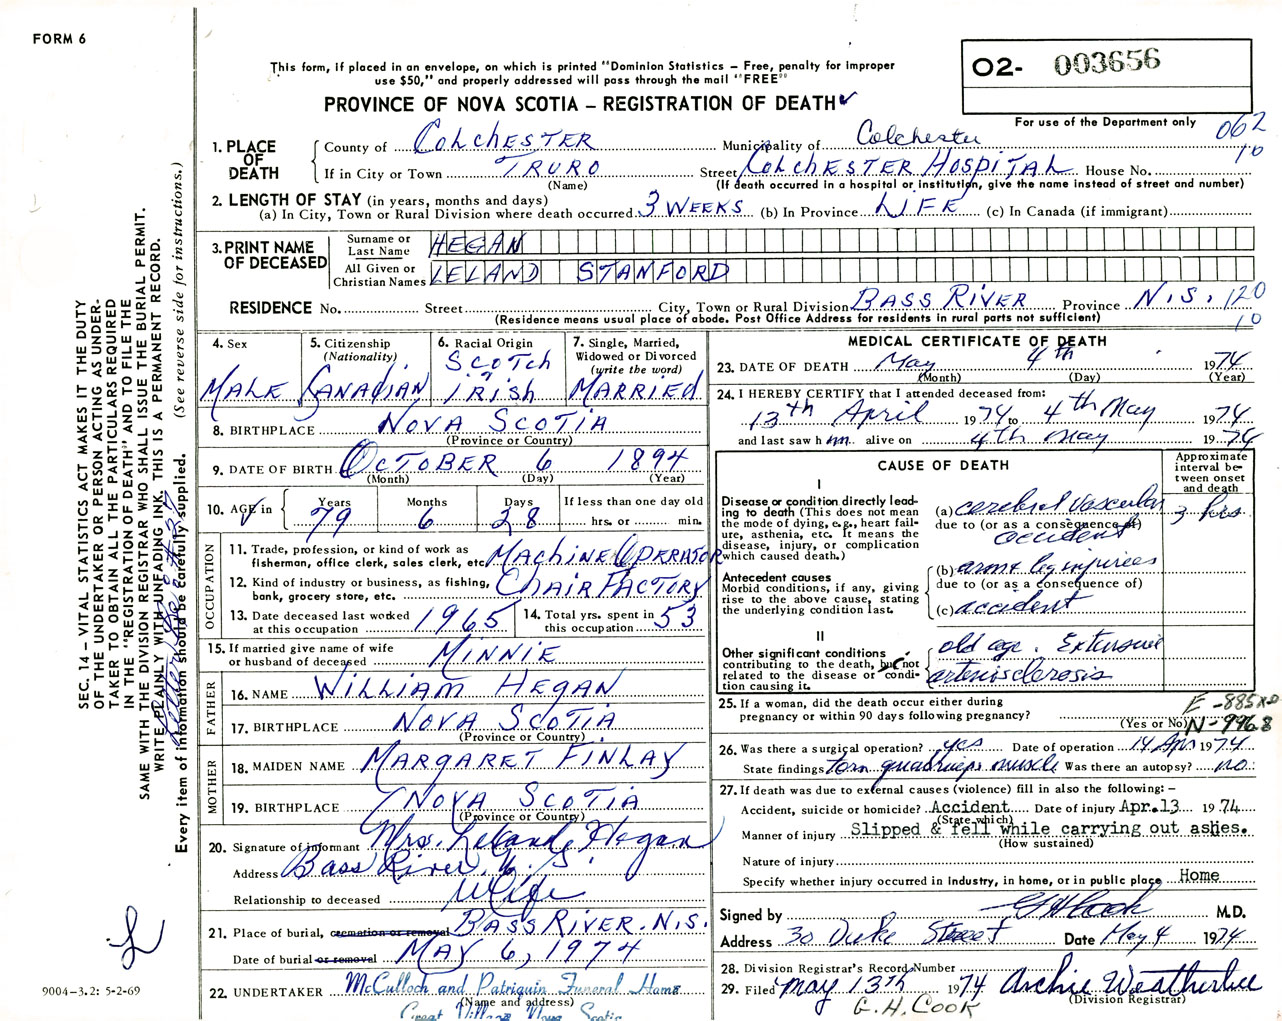 FORM 6
This form, if placed in an envelope, on which is printed "Dominion Statistics – Free, penalty for improper
use $50," and properly addressed will pass through the mail "FREE"
02- 003656
PROVINCE OF NOVA SCOTIA – REGISTRATION OF DEATH ✓
For use of the Department only
062
10
1. PLACE OF DEATH
County of COLCHESTER Municipality of Colchester
If in City or Town TRURO Street COLCHESTER HOSPITAL House No.
(Name) (If death occurred in a hospital or institution, give the name instead of street and number)
2. LENGTH OF STAY (in years, months and days)
(a) In City, Town or Rural Division where death occurred 3 WEEKS (b) In Province LIFE (c) In Canada (if immigrant)
3. PRINT NAME OF DECEASED
Surname or Last Name HEGAN
All Given or Christian Names LELAND STANFORD
RESIDENCE No. Street City, Town or Rural Division BASS RIVER Province N.S. 120
(Residence means usual place of abode. Post Office Address for residents in rural parts not sufficient) 10
4. Sex MALE
5. Citizenship (Nationality) CANADIAN
6. Racial Origin SCOTCH IRISH
7. Single, Married, Widowed or Divorced (write the word) MARRIED
8. BIRTHPLACE NOVA SCOTIA
(Province or Country)
9. DATE OF BIRTH OCTOBER 6 1894
(Month) (Day) (Year)
10. AGE in Years 79 Months 6 Days 28 If less than one day old hrs. or min.
OCCUPATION
11. Trade, profession, or kind of work as fisherman, office clerk, sales clerk, etc. MACHINE OPERATOR
12. Kind of industry or business, as fishing, bank, grocery store, etc. CHAIR FACTORY
13. Date deceased last worked at this occupation 1965
14. Total yrs. spent in this occupation 53
15. If married give name of wife or husband of deceased MINNIE
FATHER
16. NAME WILLIAM HEGAN
17. BIRTHPLACE NOVA SCOTIA
(Province or Country)
MOTHER
18. MAIDEN NAME MARGARET FINLAY
19. BIRTHPLACE NOVA SCOTIA
(Province or Country)
20. Signature of informant Mrs. Leland Hegan
Address Bass River N.S.
Relationship to deceased Wife
21. Place of burial, cremation or removal BASS RIVER. N.S.
Date of burial or removal MAY 6, 1974
22. UNDERTAKER McCulloch and Patriquin Funeral Home
(Name and address)
Great Village Nova Scotia
MEDICAL CERTIFICATE OF DEATH
23. DATE OF DEATH May 4th 1974
(Month) (Day) (Year)
24. I HEREBY CERTIFY that I attended deceased from:
13th April 1974 to 4th May 1974
and last saw him alive on 4th May 1974
CAUSE OF DEATH
Approximate interval between onset and death
I
Disease or condition directly leading to death (This does not mean the mode of dying, e.g., heart failure, asthenia, etc. It means the disease, injury, or complication which caused death.)
(a) cerebral vascular accident 3 hrs
due to (or as a consequence of)
Antecedent causes
Morbid conditions, if any, giving rise to the above cause, stating the underlying condition last.
(b) arm & leg injuries
due to (or as a consequence of)
(c) accident
II
Other significant conditions contributing to the death, but not related to the disease or condition causing it.
old age. Extensive
arteriosclerosis
25. If a woman, did the death occur either during pregnancy or within 90 days following pregnancy?
(Yes or No)
E-885
N-996.8
26. Was there a surgical operation? yes Date of operation 14 Apr 1974
State findings torn quadriceps muscle Was there an autopsy? no
27. If death was due to external causes (violence) fill in also the following: –
Accident, suicide or homicide? Accident Date of injury Apr.13 1974
(State which)
Manner of injury Slipped & fell while carrying out ashes.
(How sustained)
Nature of injury
Specify whether injury occurred in industry, in home, or in public place Home
Signed by G H Cook M.D.
Address 30 Duke Street Date May 4 1974
28. Division Registrar's Record Number
29. Filed May 13th 1974 Archie Weatherbee
(Division Registrar)
G.H. COOK
SEC. 14 – VITAL STATISTICS ACT MAKES IT THE DUTY
OF THE UNDERTAKER OR PERSON ACTING AS UNDER-
TAKER TO OBTAIN ALL THE PARTICULARS REQUIRED
IN THE "REGISTRATION OF DEATH" AND TO FILE THE
SAME WITH THE DIVISION REGISTRAR WHO SHALL ISSUE THE BURIAL PERMIT.
WRITE PLAINLY WITH UNFADING INK. THIS IS A PERMANENT RECORD.
Every item of information should be carefully supplied. (See reverse side for instructions.)
9004-3.2: 5-2-69